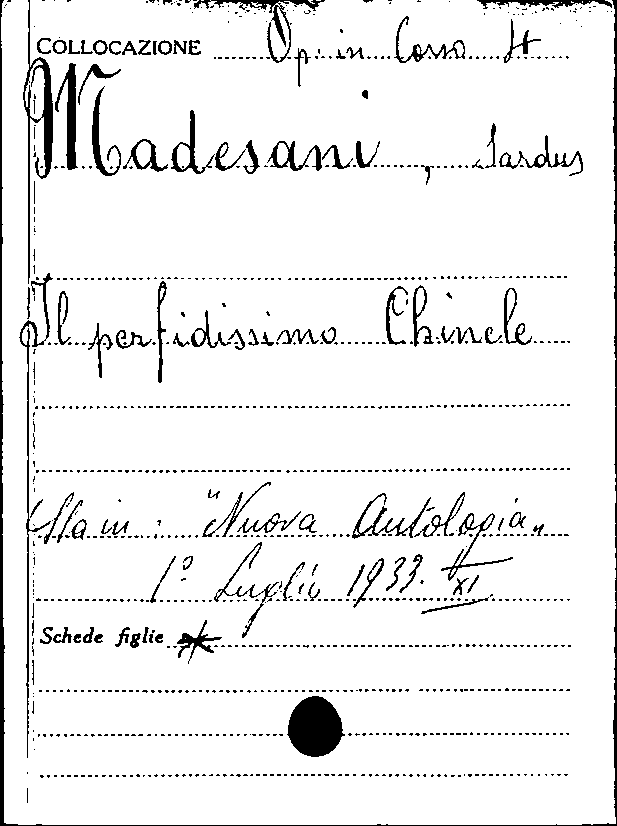 COLLOCAZIONE Op. in Corso It
Madesani, Sardus
Il perfidissimo Chinele
Sta in: "Nuova Antologia„
1º Luglio 1933. XI
Schede figlie